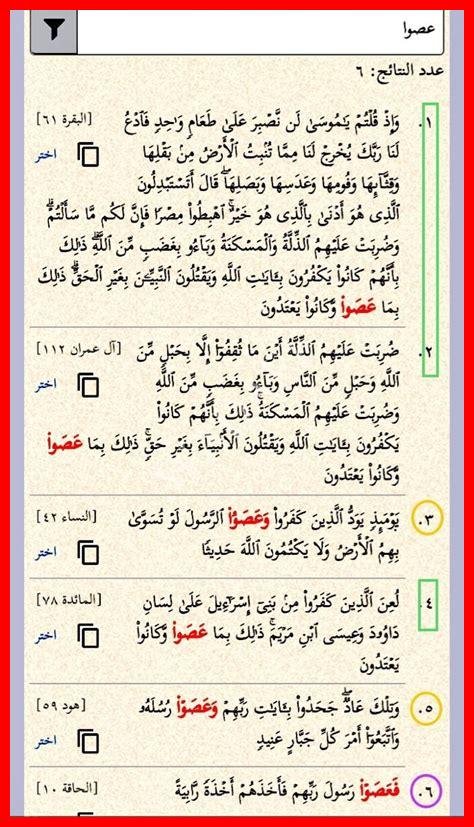 عصوا
عدد النتائج: ٦
١. وَإِذۡ قُلۡتُمۡ يَٰمُوسَىٰ لَن نَّصۡبِرَ عَلَىٰ طَعَامٖ وَٰحِدٖ فَٱدۡعُ [البقرة ٦١]
لَنَا رَبَّكَ يُخۡرِجۡ لَنَا مِمَّا تُنۢبِتُ ٱلۡأَرۡضُ مِنۢ بَقۡلِهَا اختر
وَقِثَّآئِهَا وَفُومِهَا وَعَدَسِهَا وَبَصَلِهَاۖ قَالَ أَتَسۡتَبۡدِلُونَ
ٱلَّذِي هُوَ أَدۡنَىٰ بِٱلَّذِي هُوَ خَيۡرٌۚ ٱهۡبِطُواْ مِصۡرٗا فَإِنَّ لَكُم مَّا سَأَلۡتُمۡۗ
وَضُرِبَتۡ عَلَيۡهِمُ ٱلذِّلَّةُ وَٱلۡمَسۡكَنَةُ وَبَآءُو بِغَضَبٖ مِّنَ ٱللَّهِۗ ذَٰلِكَ
بِأَنَّهُمۡ كَانُواْ يَكۡفُرُونَ بِـَٔايَٰتِ ٱللَّهِ وَيَقۡتُلُونَ ٱلنَّبِيِّـۧنَ بِغَيۡرِ ٱلۡحَقِّۗ ذَٰلِكَ
بِمَا عَصَواْ وَّكَانُواْ يَعۡتَدُونَ
٢. ضُرِبَتۡ عَلَيۡهِمُ ٱلذِّلَّةُ أَيۡنَ مَا ثُقِفُوٓاْ إِلَّا بِحَبۡلٖ مِّنَ [آل عمران ١١٢]
ٱللَّهِ وَحَبۡلٖ مِّنَ ٱلنَّاسِ وَبَآءُو بِغَضَبٖ مِّنَ ٱللَّهِ اختر
وَضُرِبَتۡ عَلَيۡهِمُ ٱلۡمَسۡكَنَةُۚ ذَٰلِكَ بِأَنَّهُمۡ كَانُواْ
يَكۡفُرُونَ بِـَٔايَٰتِ ٱللَّهِ وَيَقۡتُلُونَ ٱلۡأَنۢبِيَآءَ بِغَيۡرِ حَقّٖۚ ذَٰلِكَ بِمَا عَصَواْ
وَّكَانُواْ يَعۡتَدُونَ
٣. يَوۡمَئِذٖ يَوَدُّ ٱلَّذِينَ كَفَرُواْ وَعَصَوُاْ ٱلرَّسُولَ لَوۡ تُسَوَّىٰ [النساء ٤٢]
بِهِمُ ٱلۡأَرۡضُ وَلَا يَكۡتُمُونَ ٱللَّهَ حَدِيثٗا اختر
٤. لُعِنَ ٱلَّذِينَ كَفَرُواْ مِنۢ بَنِيٓ إِسۡرَٰٓءِيلَ عَلَىٰ لِسَانِ [المائدة ٧٨]
دَاوُۥدَ وَعِيسَى ٱبۡنِ مَرۡيَمَۚ ذَٰلِكَ بِمَا عَصَواْ وَّكَانُواْ اختر
يَعۡتَدُونَ
٥. وَتِلۡكَ عَادٞۖ جَحَدُواْ بِـَٔايَٰتِ رَبِّهِمۡ وَعَصَوۡاْ رُسُلَهُۥ [هود ٥٩]
وَٱتَّبَعُوٓاْ أَمۡرَ كُلِّ جَبَّارٍ عَنِيدٖ اختر
٦. فَعَصَوۡاْ رَسُولَ رَبِّهِمۡ فَأَخَذَهُمۡ أَخۡذَةٗ رَّابِيَةً [الحاقة ١٠]